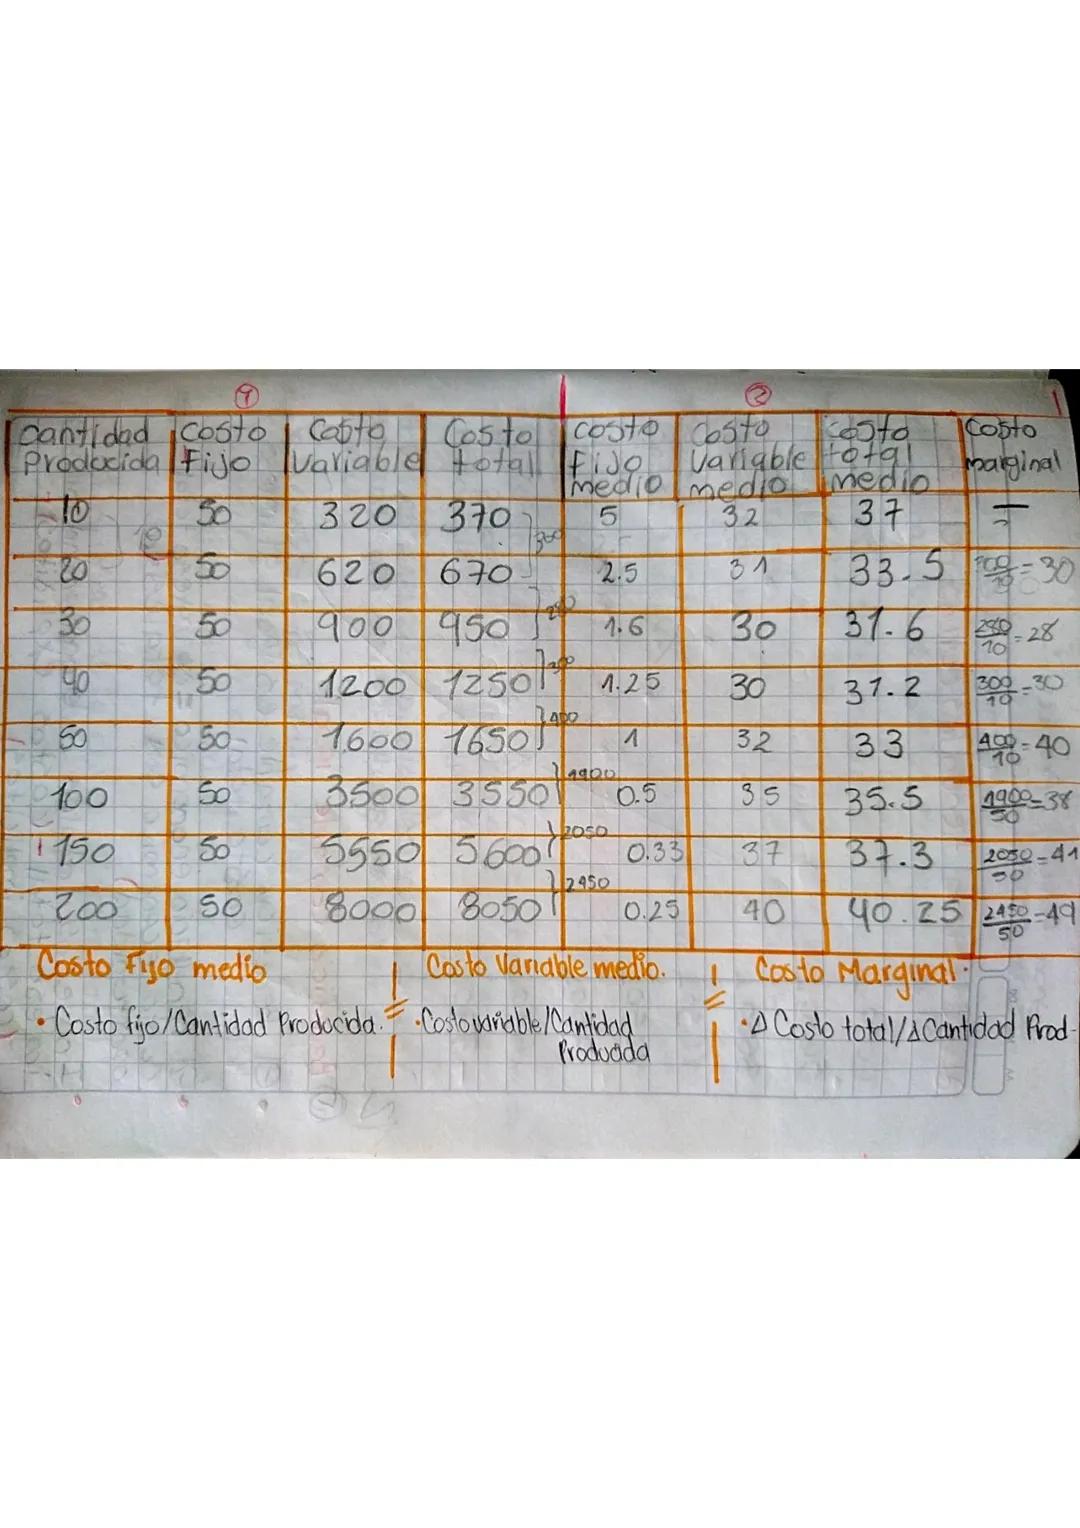 1 2
Cantidad Producida Costo Fijo Costo Variable Costo total Costo fijo medio Costo Variable medio Costo total medio Costo marginal
10 50 320 370 5 32 37 —
300
20 50 620 670 2.5 31 33.5 300/10=30
280
30 50 900 950 1.6 30 31.6 280/10=28
300
40 50 1200 1250 1.25 30 31.2 300/10=30
400
50 50 1600 1650 1 32 33 400/10=40
1900
100 50 3500 3550 0.5 35 35.5 1900/50=38
2050
150 50 5550 5600 0.33 37 37.3 2050/50=41
2450
200 50 8000 8050 0.25 40 40.25 2450/50=49
Costo Fijo medio
• Costo fijo/Cantidad Producida.
Costo Variable medio.
• Costo variable/Cantidad
Producida
Costo Marginal.
• Δ Costo total/Δ Cantidad Prod.